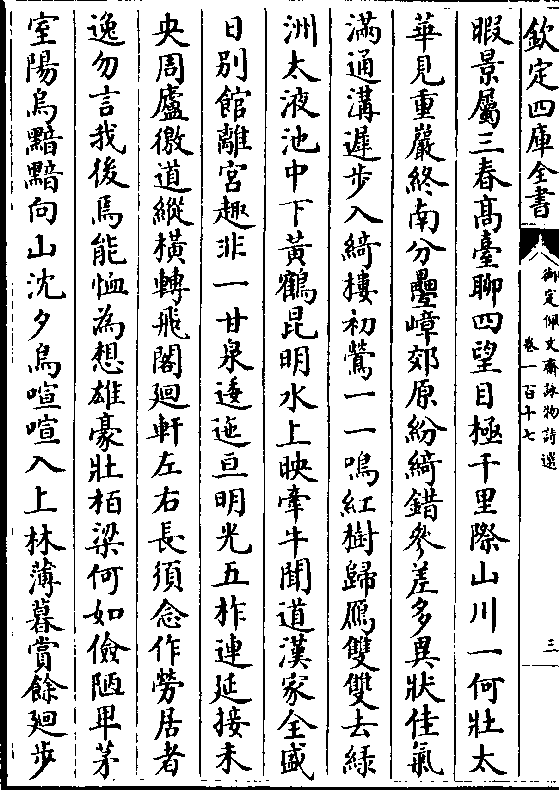 欽定四庫全書
御定佩文齋詠物詩選
卷一百十七
三
暇景屬三春高臺聊四望目極千里際山川一何壯太
華見重巖終南分疊嶂郊原紛綺錯參差多異狀佳氣
滿通溝遲步入綺樓初鶯一一鳴紅樹歸鴈雙雙去緑
洲太液池中下黃鶴昆明水上映牽牛聞道漢家全盛
日别館離宮趣非一甘泉逶迤亘明光五柞連延接未
央周廬徼道縱横轉飛閣廻軒左右長須念作勞居者
逸勿言我後焉能恤為想雄豪壯柏梁何如儉陋卑茅
室陽烏黯黯向山沈夕鳥喧喧入上林薄暮賞餘廻步